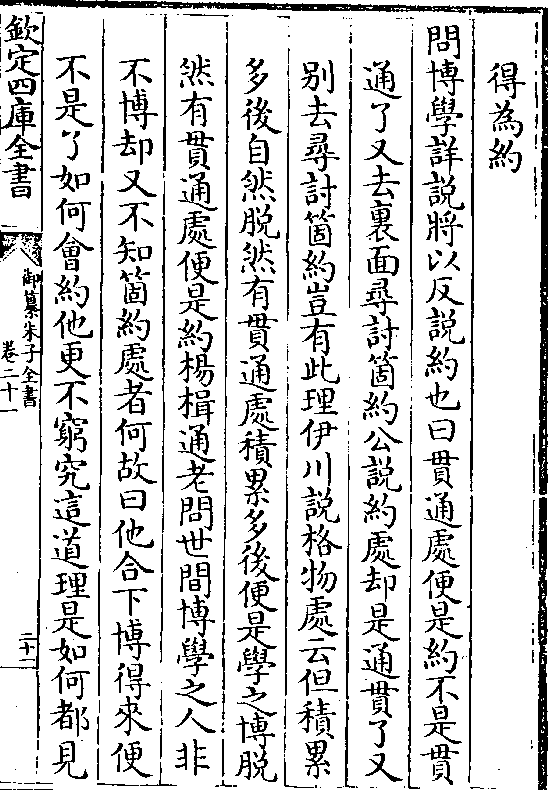 得為約
問博學詳説將以反説約也曰貫通處便是約不是貫
通了又去裏面尋討箇約公説約處却是通貫了又
别去尋討箇約豈有此理伊川説格物處云但積累
多後自然脱然有貫通處積累多後便是學之博脱
然有貫通處便是約楊楫通老問世間博學之人非
不博却又不知箇約處者何故曰他合下博得來便
不是了如何會約他更不窮究這道理是如何都見
欽定四庫全書
御纂朱子全書
卷二十一
二十一